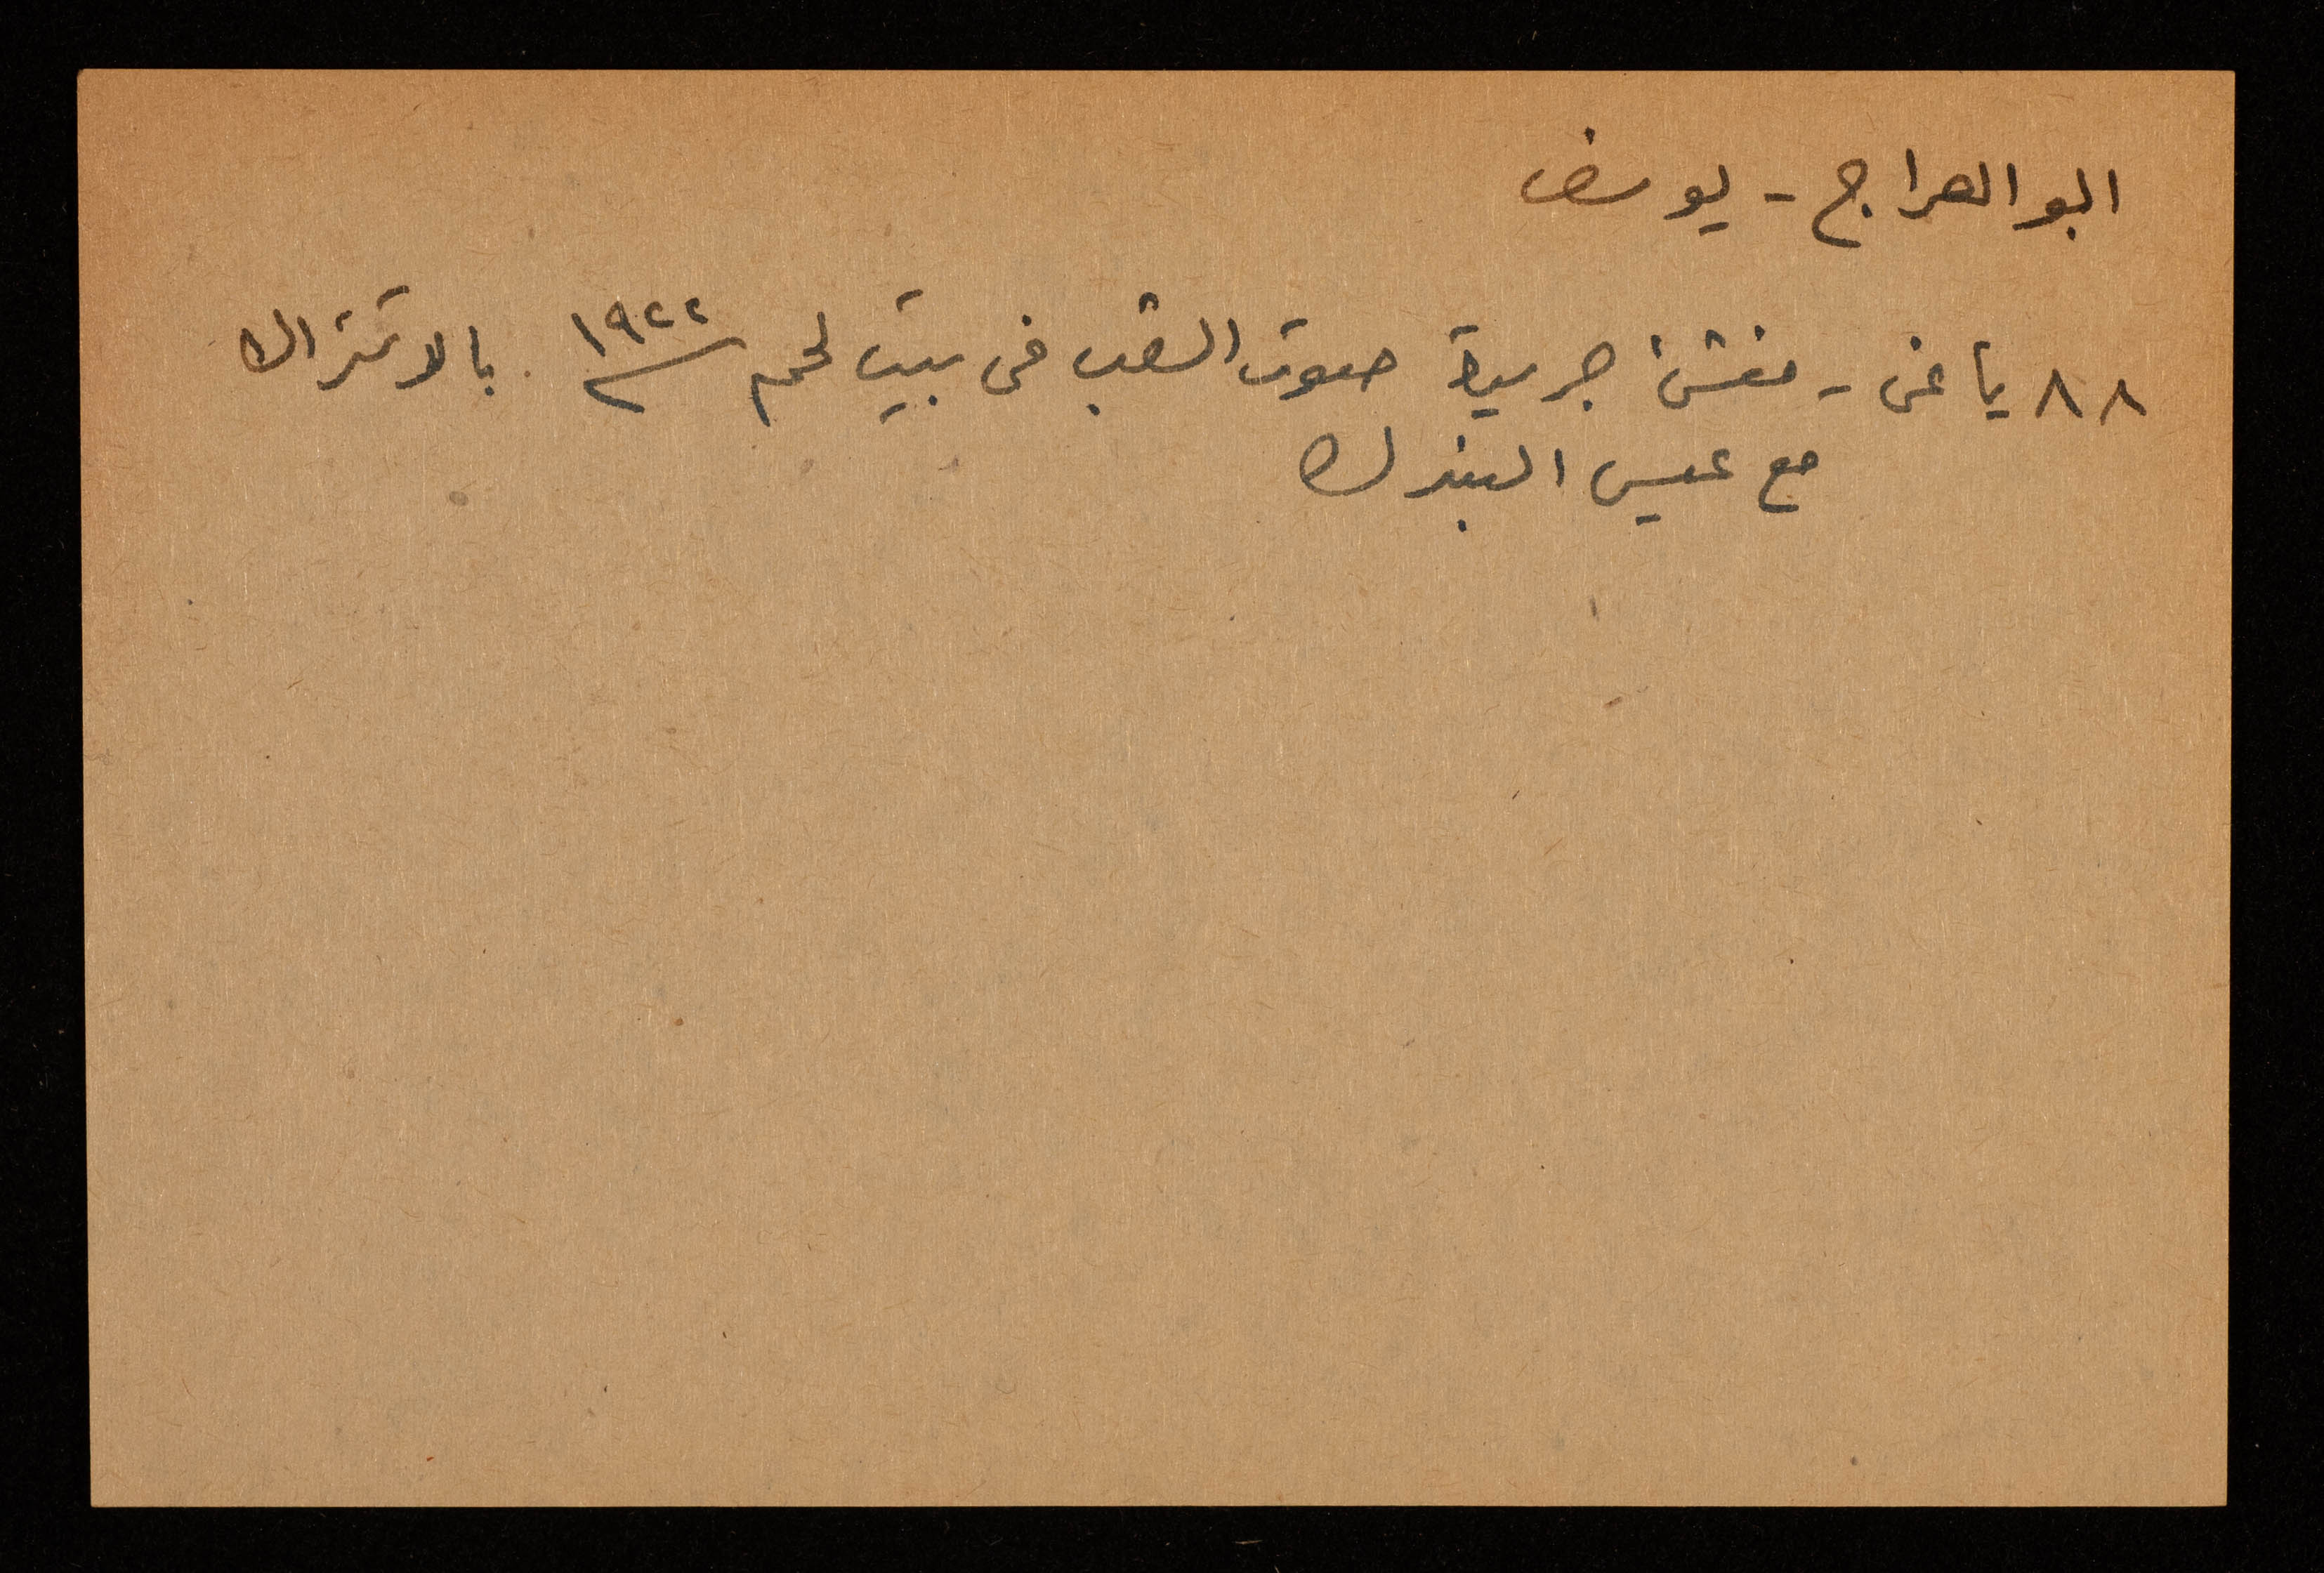 ابو العراج - يوسف
٨٨ ياغى - منشئ جريدة صوت الشعب فى بيت لحم سنة ١٩٢٢ . بالاشتراك
مع عيسى البندك